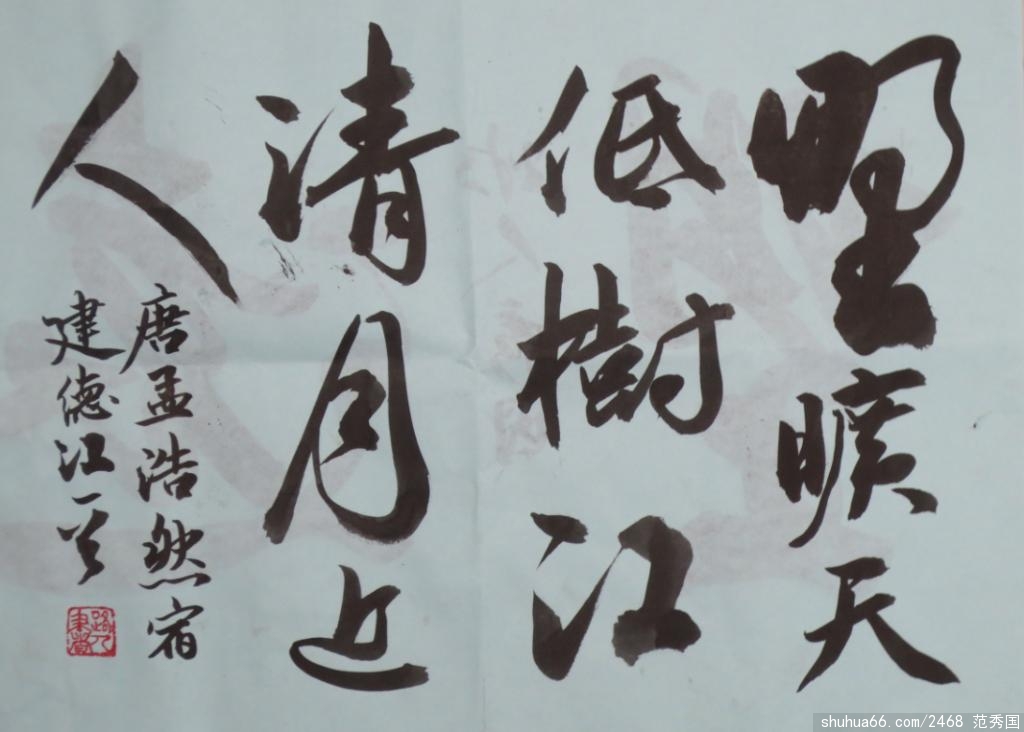 野曠天
低樹江
清月近
人
唐孟浩然宿
建德江一首
shuhua66.com/2468 范秀国